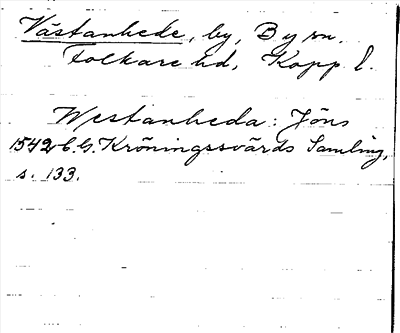 Västanhede, by, By sn.
Folkare hd, Kopp. l.
Westanheda: Jöns
1542 C.G. Kröningssvärds Samling,
s. 133.